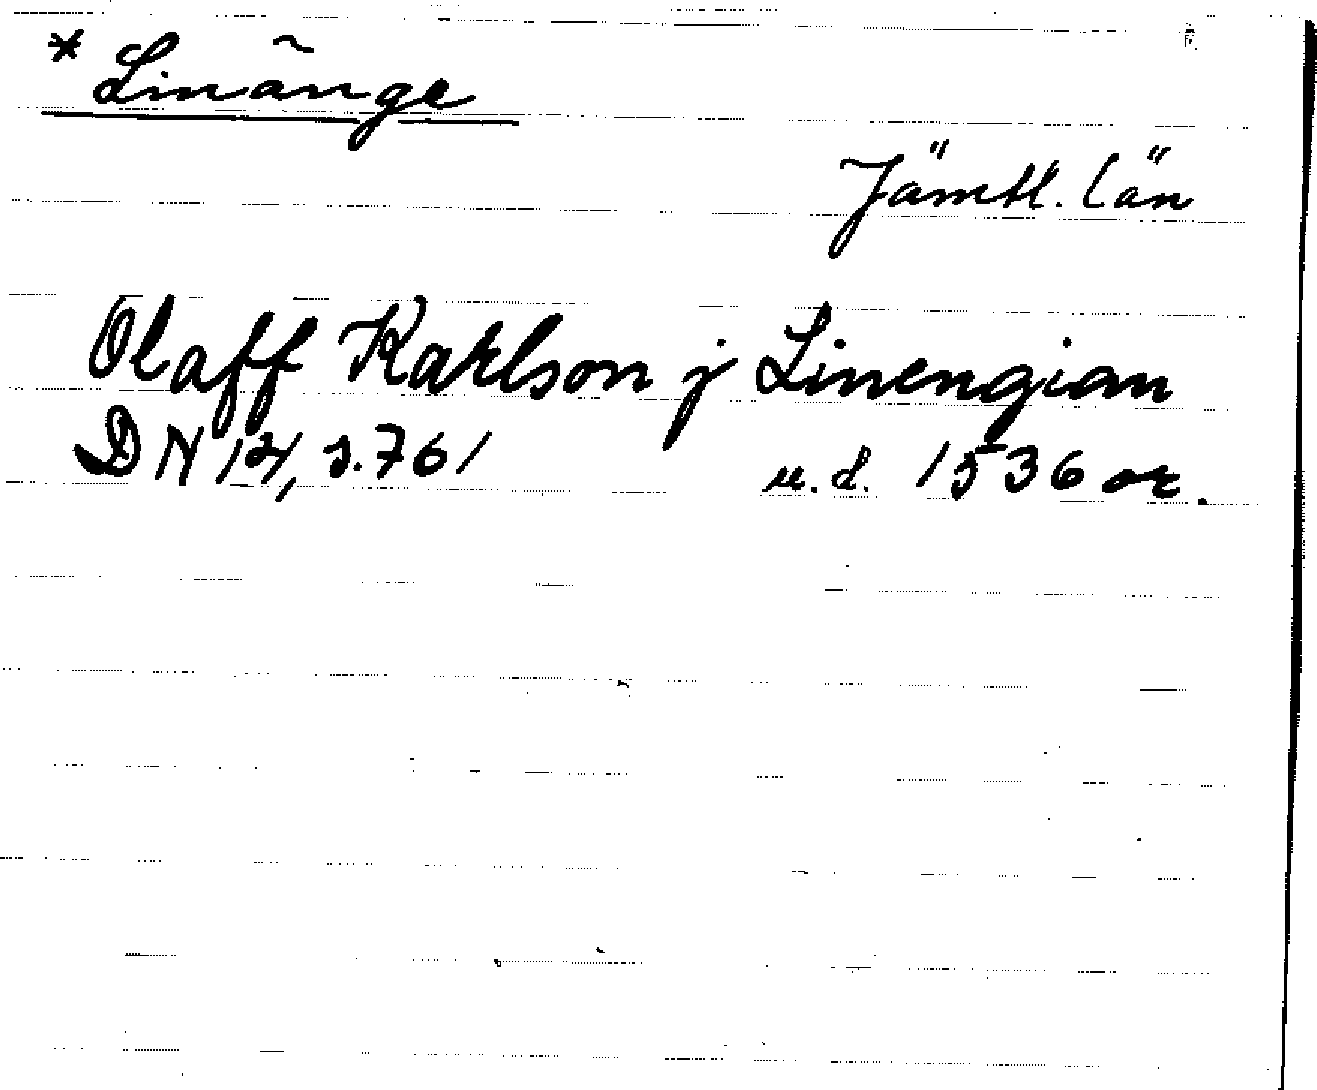 * Linänge
Jämtl. län
Olaff Karlson j Linengian
DN 14, s. 761 u.d. 1536 or.